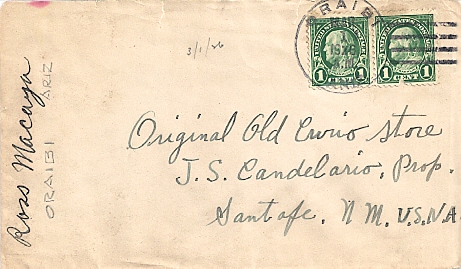 ORAIBI
MAR
1
1926
ARIZ.
UNITED STATES POSTAGE
1 CENT 1
UNITED STATES POSTAGE
1 CENT 1
3/1/26
Ross Macaya
ORAIBI ARIZ
Original Old Curio Store
J.S. Candelario, Prop.
Santafe, N M. U.S.N.A